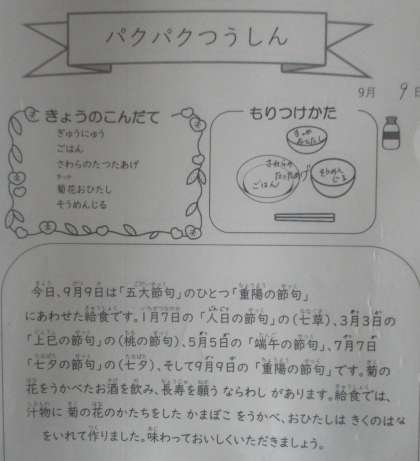 パクパクつうしん
9月 9日
きょうのこんだて
ぎゅうにゅう
ごはん
さわらのたつたあげ
菊花おひたし
そうめんじる
もりつけかた
きっか
おひたし
さわらの
たつたあげ
ごはん
そうめん
じる
今日、9月9日は「五大節句」のひとつ「重陽の節句」
にあわせた給食です。1月7日の「人日の節句」の(七草)、3月3日の
「上巳の節句」の(桃の節句)、5月5日の「端午の節句」、7月7日
「七夕の節句」の(七夕)、そして9月9日の「重陽の節句」です。菊の
花をうかべたお酒を飲み、長寿を願う ならわし があります。給食では、
汁物に 菊の花のかたちをした かまぼこ をうかべ、おひたしは きくのはな
をいれて作りました。味わっておいしくいただきましょう。